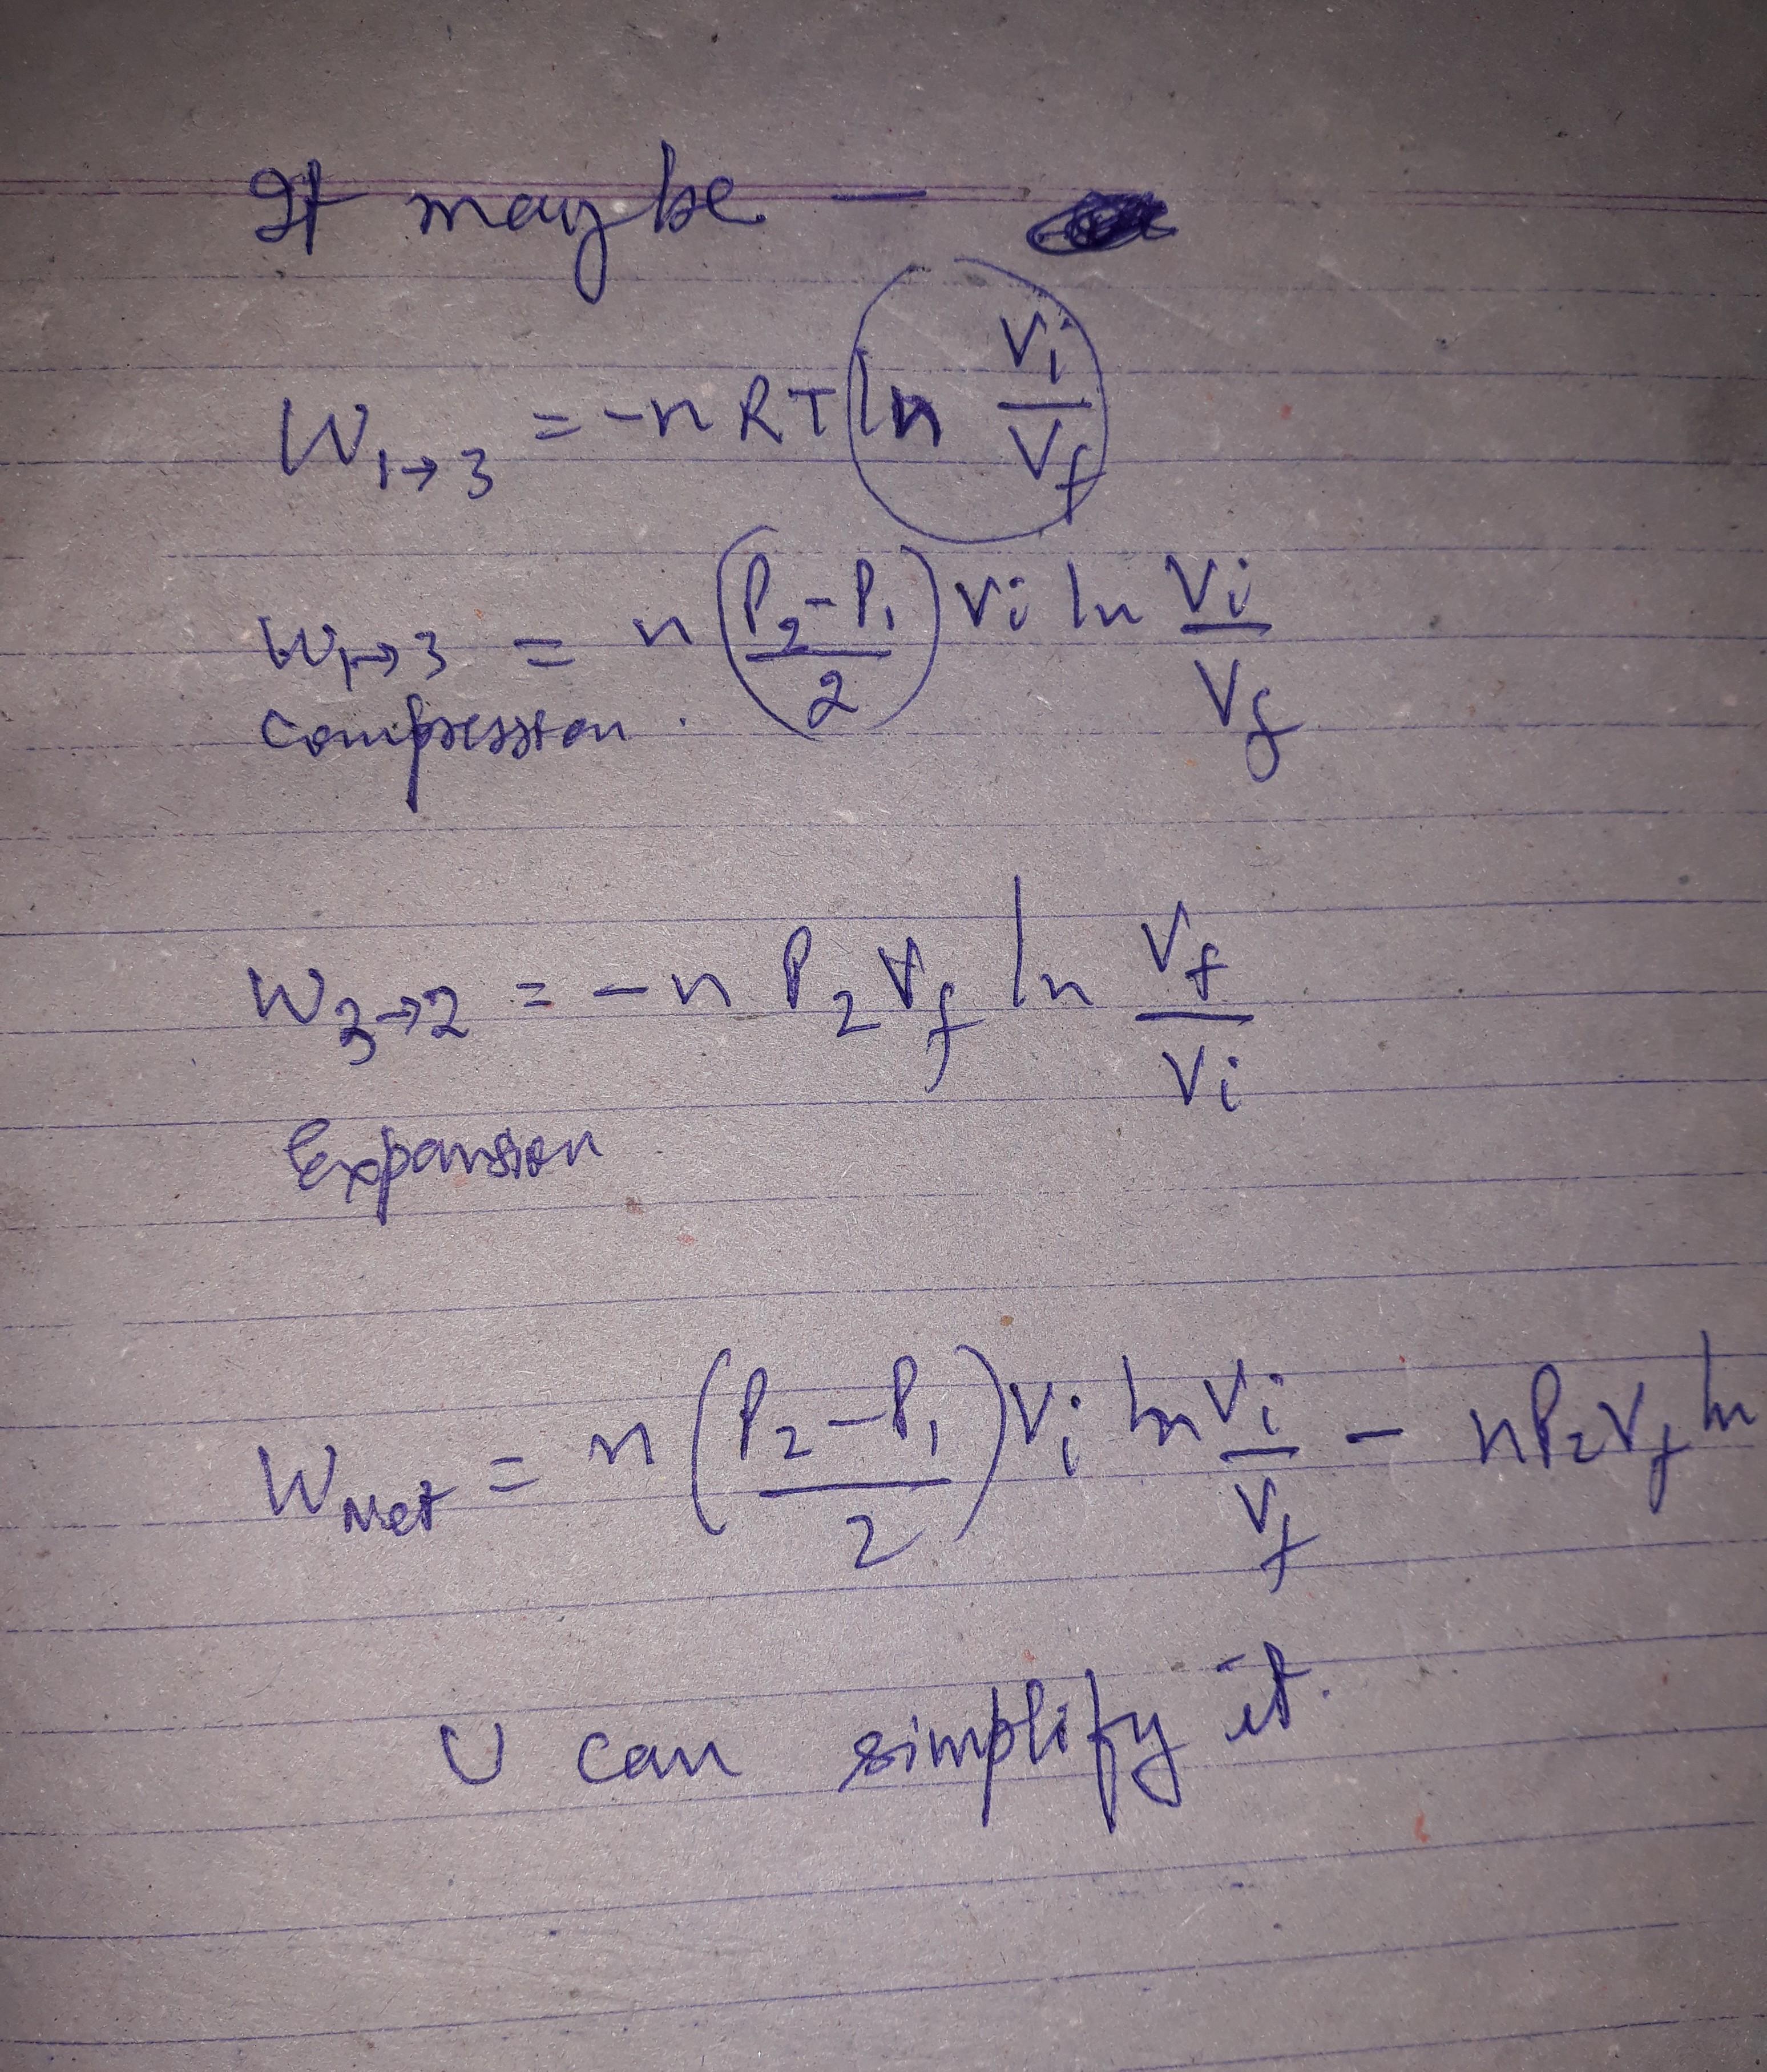 It may be —
W₁→₃ = -nRT (ln Vi/Vf)
W₁→₃ = n ((P₂-P₁)/2) Vi ln Vi/Vf
Compression.
W₃→₂ = -n P₂ Vf ln Vf/Vi
Expansion
W Net = n ((P₂-P₁)/2) Vi ln Vi/Vf - nP₂Vf ln
U can simplify it.